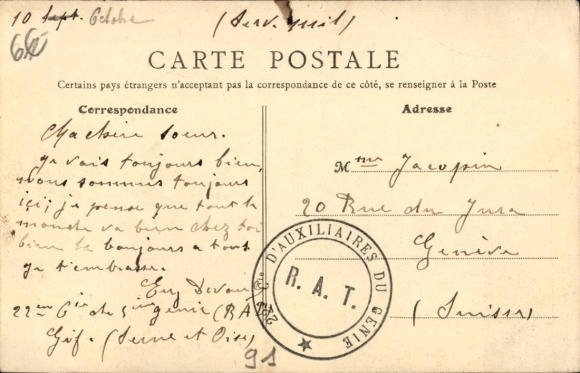 10 Sept. Octobre
(Serv. milit)
66
CARTE POSTALE
Certains pays étrangers n'acceptant pas la correspondance de ce côté, se renseigner à la Poste
Correspondance
Ma chère Soeur.
je vais toujours bien,
nous sommes toujours
ici; je pense que tout le
monde va bien chez toi
bien le bonjours a tout
je t'embrasse.
Eug
22em Cie de 5ime genie (RAT)
Gif. (Seine et Oise)
91
Adresse
Mme Jacopin
20 Rue du Jura
Genève
(Suisse)
22e Cie D'AUXILIAIRES DU GENIE
R. A. T.